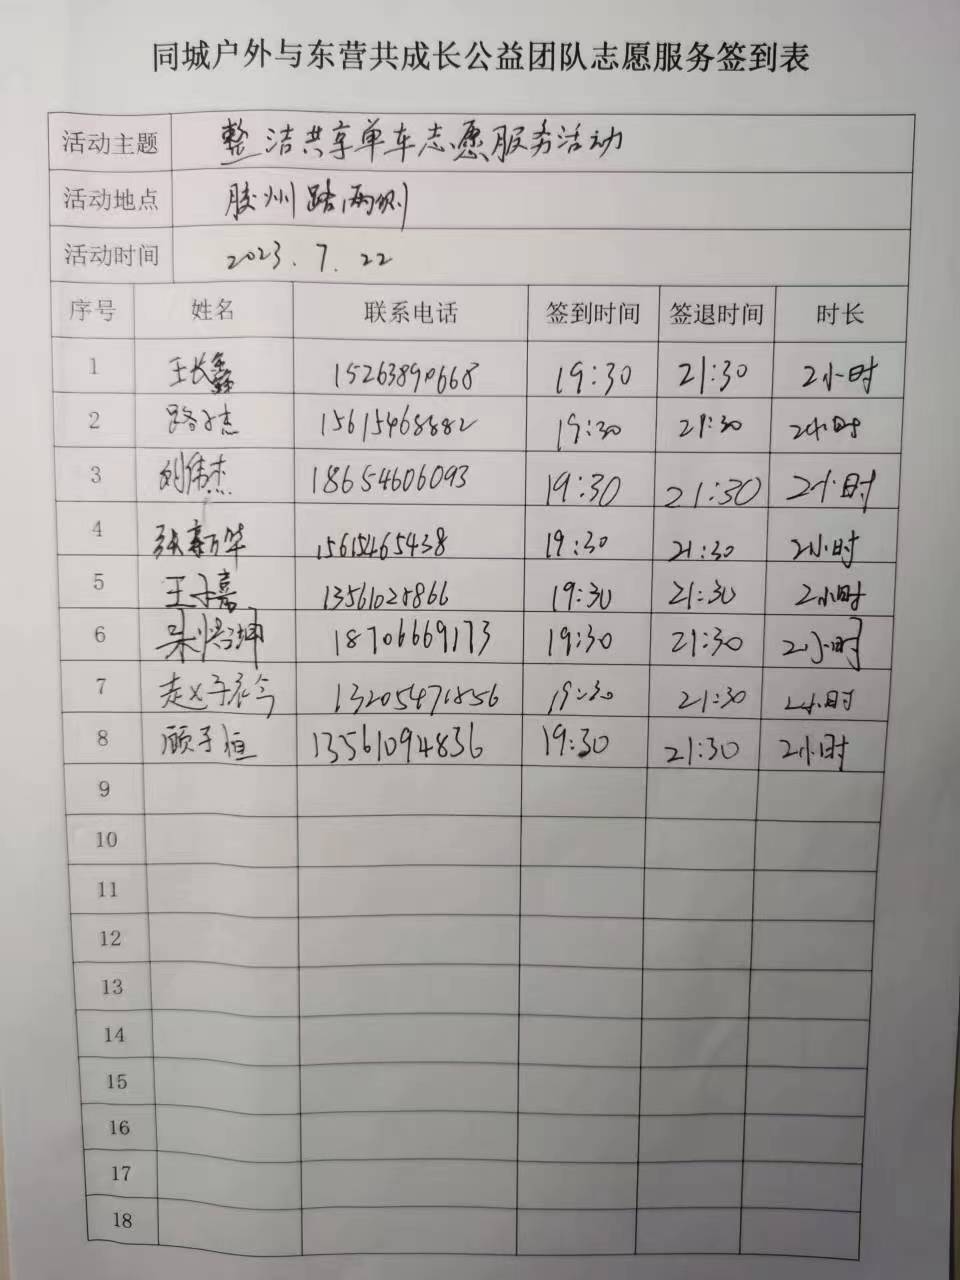 同城户外与东营共成长公益团队志愿服务签到表
活动主题 整洁共享单车志愿服务活动
活动地点 胶州路两侧
活动时间 2023.7.22
序号 姓名 联系电话 签到时间 签退时间 时长
1 王长鑫 15263890668 19:30 21:30 2小时
2 路子杰 15615468882 19:30 21:30 2小时
3 刘伟杰 18654606093 19:30 21:30 2小时
4 张新华 15615465438 19:30 21:30 2小时
5 王子嘉 13561028866 19:30 21:30 2小时
6 18706669173 19:30 21:30 2小时
7 赵子衿 13205471856 19:30 21:30 2小时
8 顾子恒 13561094836 19:30 21:30 2小时
9
10
11
12
13
14
15
16
17
18